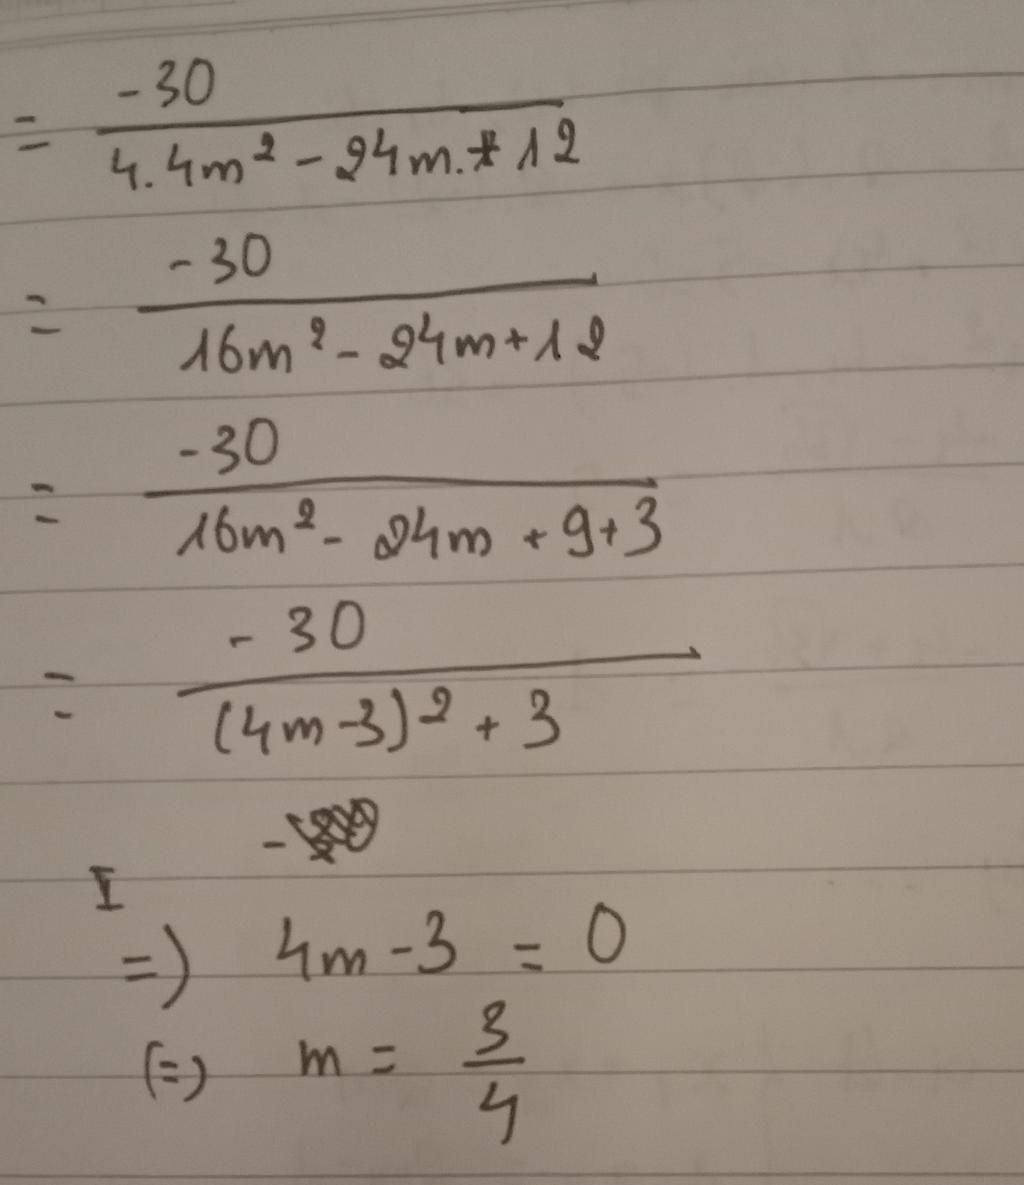 = -30 / 4.4m² - 24m. + 12
= -30 / 16m² - 24m + 12
= -30 / 16m² - 24m + 9 + 3
= -30 / (4m - 3)² + 3
-
I
=) 4m - 3 = 0
(=) m = 3/4